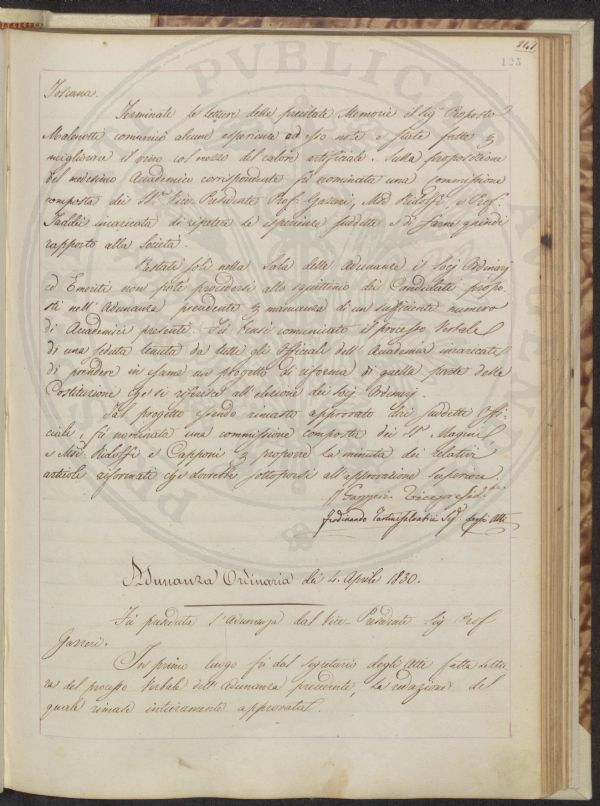 241
125
Toscana.
Terminate le letture delle precitate Memorie il Sig. Proposto
Malenotti comunicò alcune esperienze ad esso note e state fatte p
migliorare il vino col mezzo del calore artificiale. Sulla proposizione
del medesimo Accademico corrispondente fù nominata una commissione
composta dei SS.ri Vice Presidente Prof. Gazzeri, M.se Ridolfi, e Prof.
Taddei incaricata di ripetere le esperienze suddette e di farne quindi
rapporto alla Società.
Restati soli nella Sala delle Adunanze i Socj Ordinarj
ed Emeriti non potè procedersi allo squittinio dei Candidati propo
sti nell'Adunanza precedente p mancanza di un sufficiente numero
di Accademici presenti. Fù bensì comunicato il processo Verbale
di una seduta tenuta da tutti gli Officiali dell'Accademia incaricati
di prendere in esame un progetto di riforma di quella parte delle
Costituzioni che si riferisce all'elezione dei Socj Ordinarj.
Tal progetto essendo rimasto approvato dai suddetti Offi
ciali, fù nominata una commissione composta dei SS.ri Magini
e M.si Ridolfi e Capponi p proporre la minuta dei relativi
articoli riformati che dovrebbe sottoporsi all'approvazione superiore.
Gazzeri Vicepresid.te
Ferdinando Tartini Salvatici Seg. degli Atti
Adunanza Ordinaria de 4. Aprile 1830.
Fù preseduta l'adunanza dal Vice-Presidente Sig Prof
Gazzeri.
In primo luogo fù dal Segretario degli Atti fatta lettu
ra del processo Verbale dell'adunanza precedente, la redazione del
quale rimase intieramente approvata.
PVBLICA